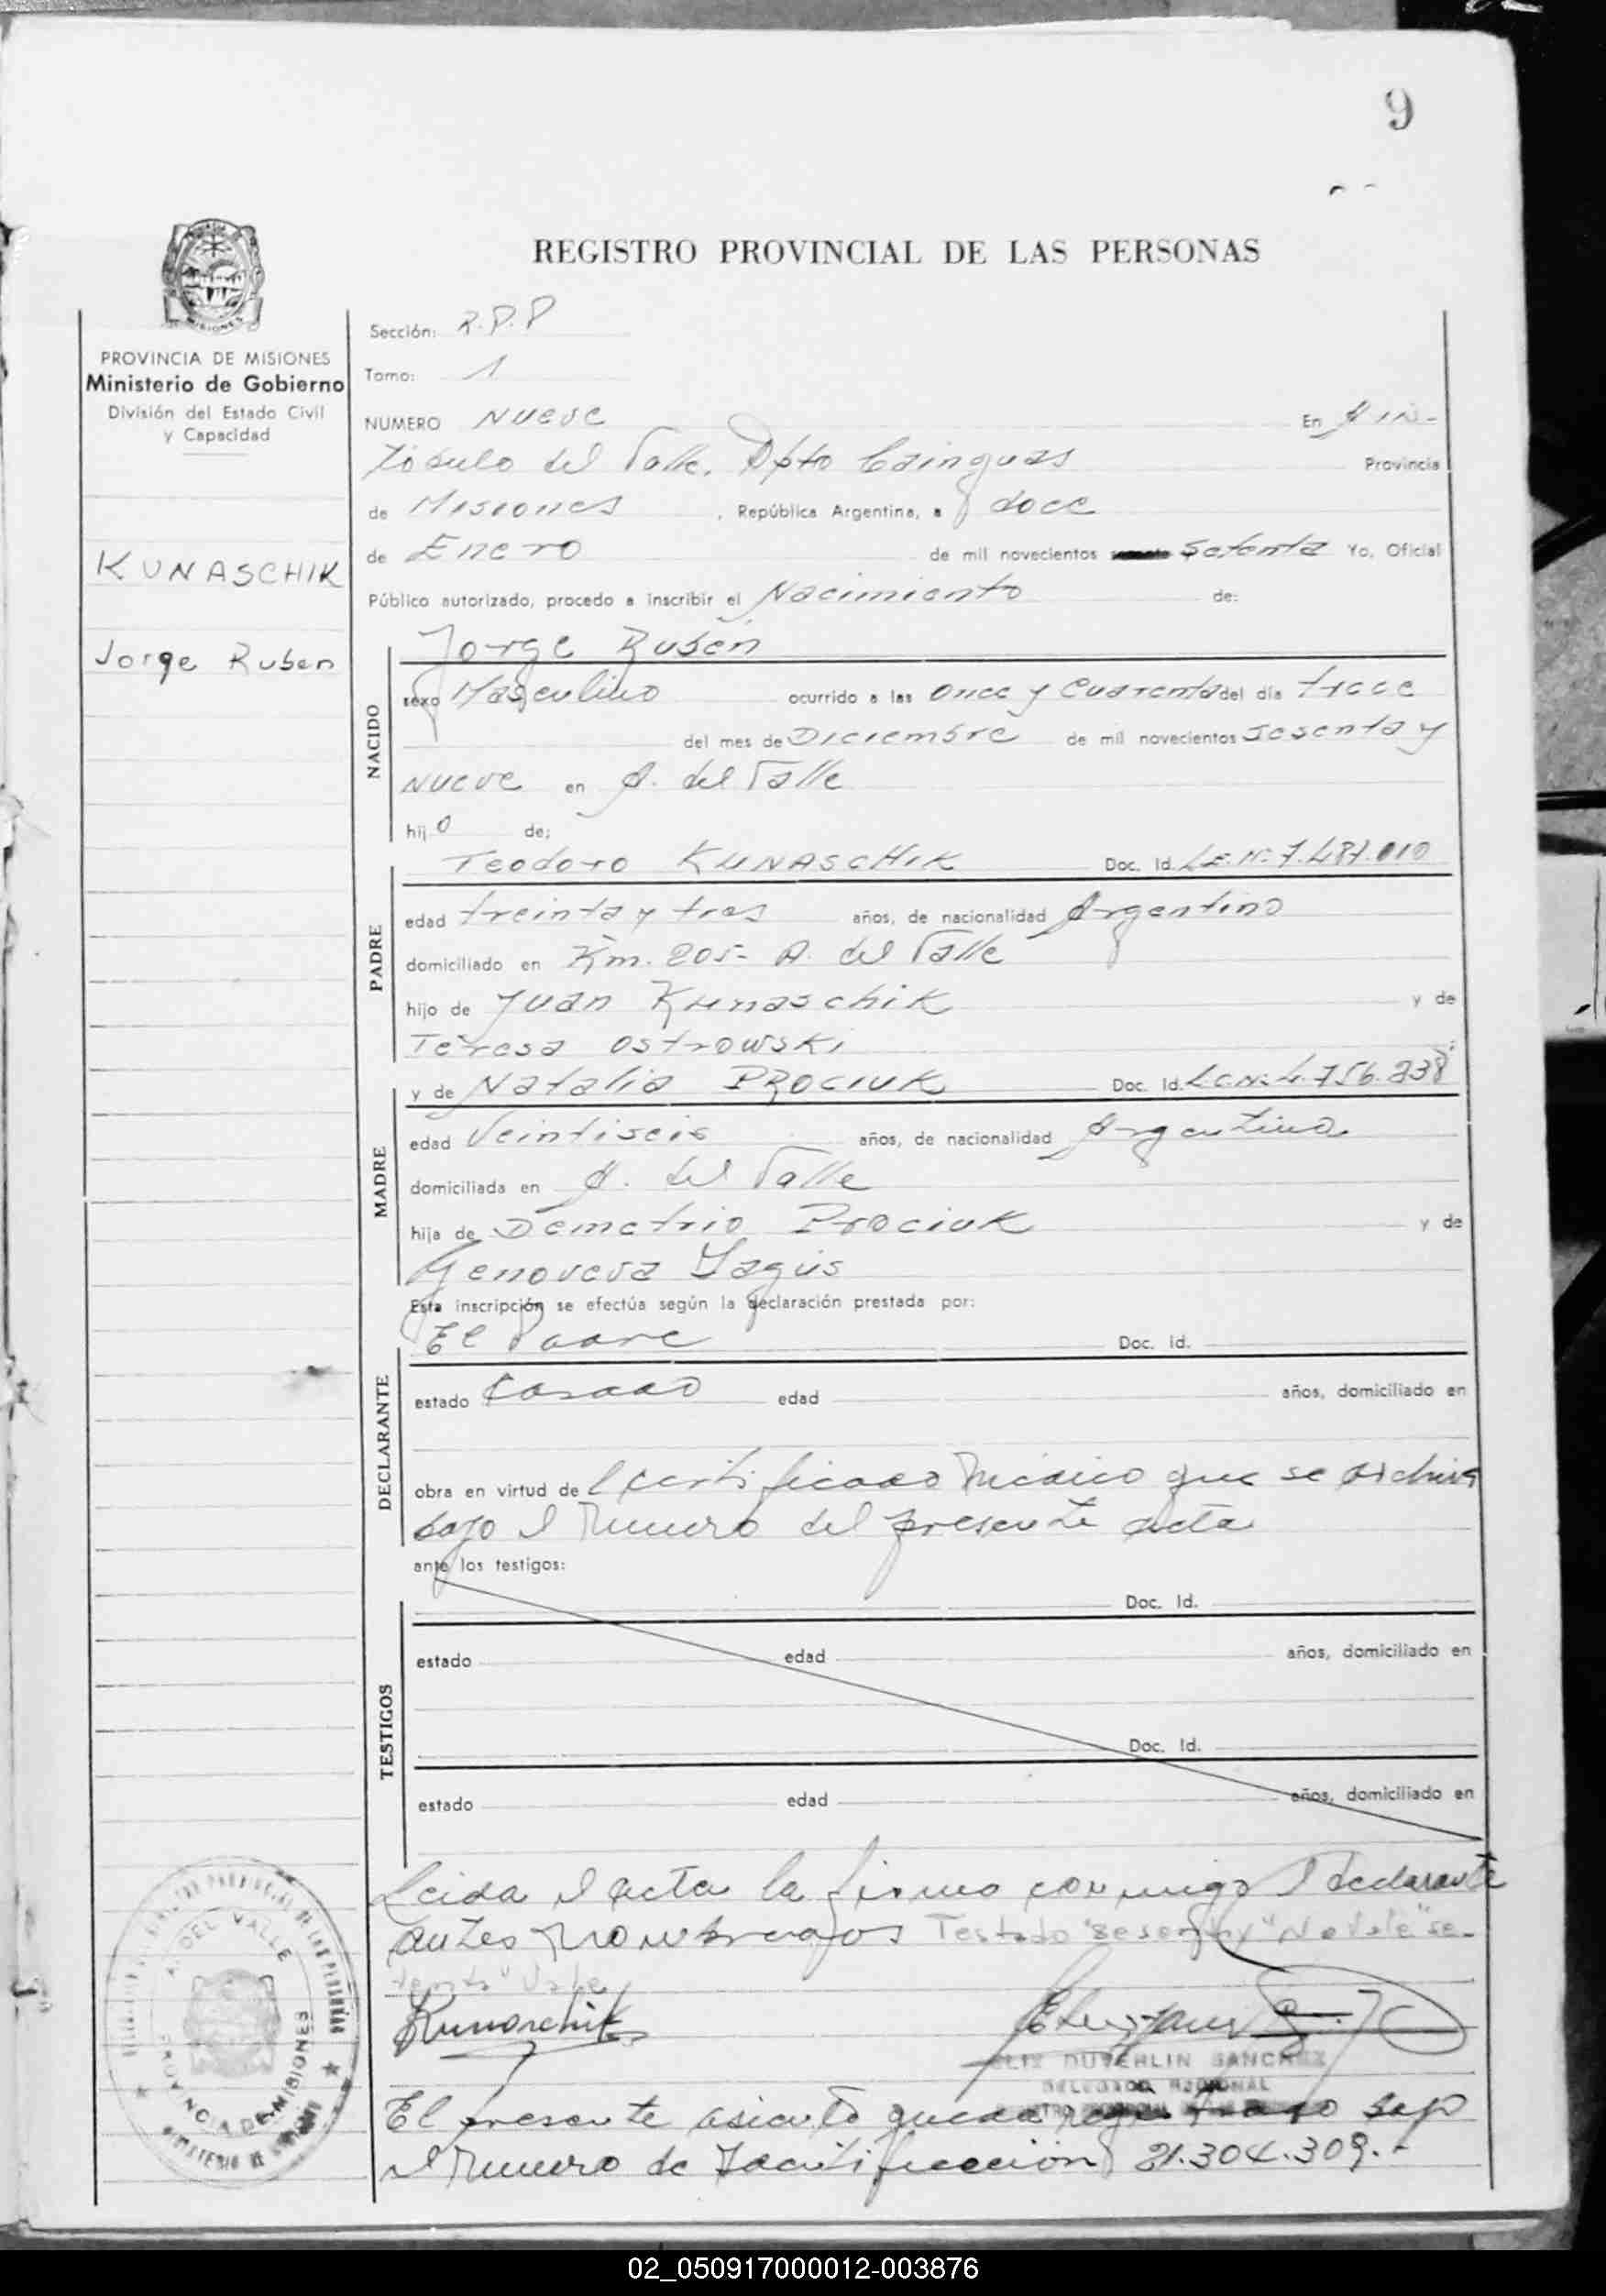 9
REGISTRO PROVINCIAL DE LAS PERSONAS
MISIONES
PROVINCIA DE MISIONES
Ministerio de Gobierno
División del Estado Civil
y Capacidad
KUNASCHIK
Jorge Ruben
Sección: R.P.P
Tomo: 1
NUMERO Nueve En Aris-
tóbulo del Valle, Dpto Cainguas Provincia
de Misiones, República Argentina, a doce
de Enero de mil novecientos setenta Yo, Oficial
Público autorizado, procedo a inscribir el Nacimiento de:
Jorge Ruben
NACIDO
sexo Masculino ocurrido a las once y cuarenta del día trece
del mes de Diciembre de mil novecientos sesenta y
nueve en A. del Valle
hijo de:
Teodoro KUNASCHIK Doc. Id. L.E.Nº 7.487.010
PADRE
edad treinta y tres años, de nacionalidad Argentino
domiciliado en Km. 205- A. del Valle
hijo de Juan Kunaschik y de
Teresa Ostrowski
y de Natalia PROCIUK Doc. Id. L.C.Nº 4.756.238
MADRE
edad Veintiseis años, de nacionalidad Argentina
domiciliada en A. del Valle
hija de Demetrio Prociuk y de
Genoveva Yagus
Esta inscripción se efectúa según la declaración prestada por:
El Padre Doc. Id.
DECLARANTE
estado Casado edad años, domiciliado en
obra en virtud del certificado médico que se archiva
bajo el Número del presente acta
ante los testigos:
Doc. Id.
TESTIGOS
estado edad años, domiciliado en
Doc. Id.
estado edad años, domiciliado en
Leida el acta la firma conmigo el declarante
antes nombrados Testado "sesenta y" No Vale "se-
tenta" Vale
Kunaschik
FELIX DUVERLIN SANCHEZ
DELEGADO REGIONAL
El presente asiento queda registrado bajo
el Número de Identificación 21.304.309.-
A. DEL VALLE
PROVINCIA DE MISIONES
02_050917000012-003876